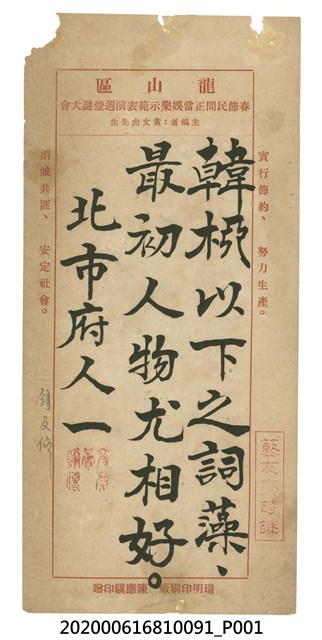 龍山區
春節民間正當娛樂示範表演週燈謎大會
主稿者：黃文虎先生
實行節約、努力生產。
韓柳以下之詞藻、
最初人物尤相好。
北市府人一
消滅共匪、安定社會。
瑞明印刷廠 陳應驥印贈
202000616810091_P001